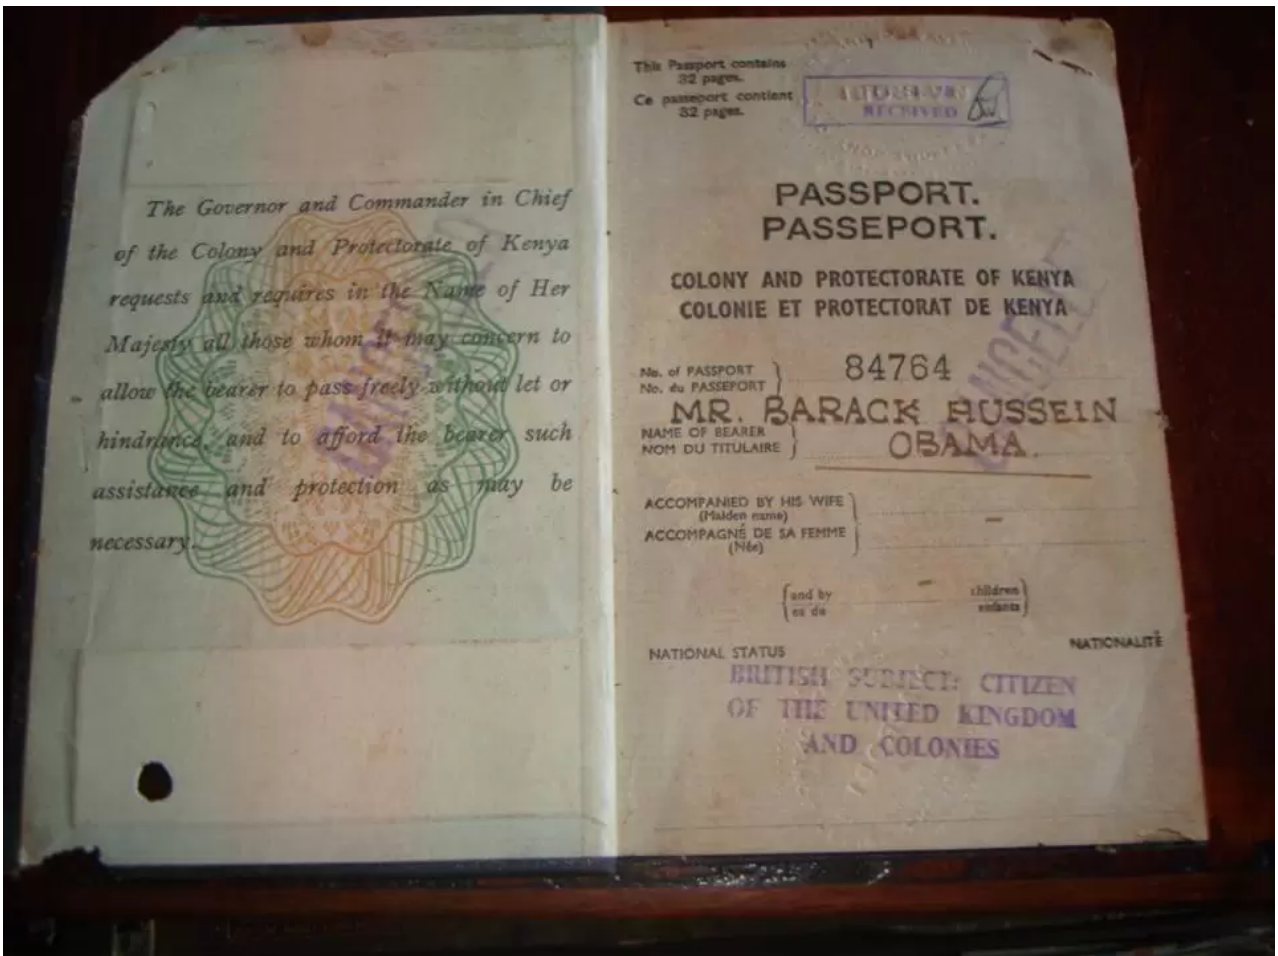 The Governor and Commander in Chief
of the Colony and Protectorate of Kenya
requests and requires in the Name of Her
Majesty all those whom it may concern to
allow the bearer to pass freely without let or
hindrance, and to afford the bearer such
assistance and protection as may be
necessary.
This Passport contains
32 pages.
Ce passeport contient
32 pages.
RECEIVED
PASSPORT.
PASSEPORT.
COLONY AND PROTECTORATE OF KENYA
COLONIE ET PROTECTORAT DE KENYA
No. of PASSPORT
No. du PASSEPORT
84764
MR. BARACK HUSSEIN
OBAMA.
NAME OF BEARER
NOM DU TITULAIRE
ACCOMPANIED BY HIS WIFE
(Maiden name)
ACCOMPAGNÉ DE SA FEMME
(Née)
and by – children
et de enfants
NATIONAL STATUS NATIONALITÉ
BRITISH SUBJECT: CITIZEN
OF THE UNITED KINGDOM
AND COLONIES
CANCELLED